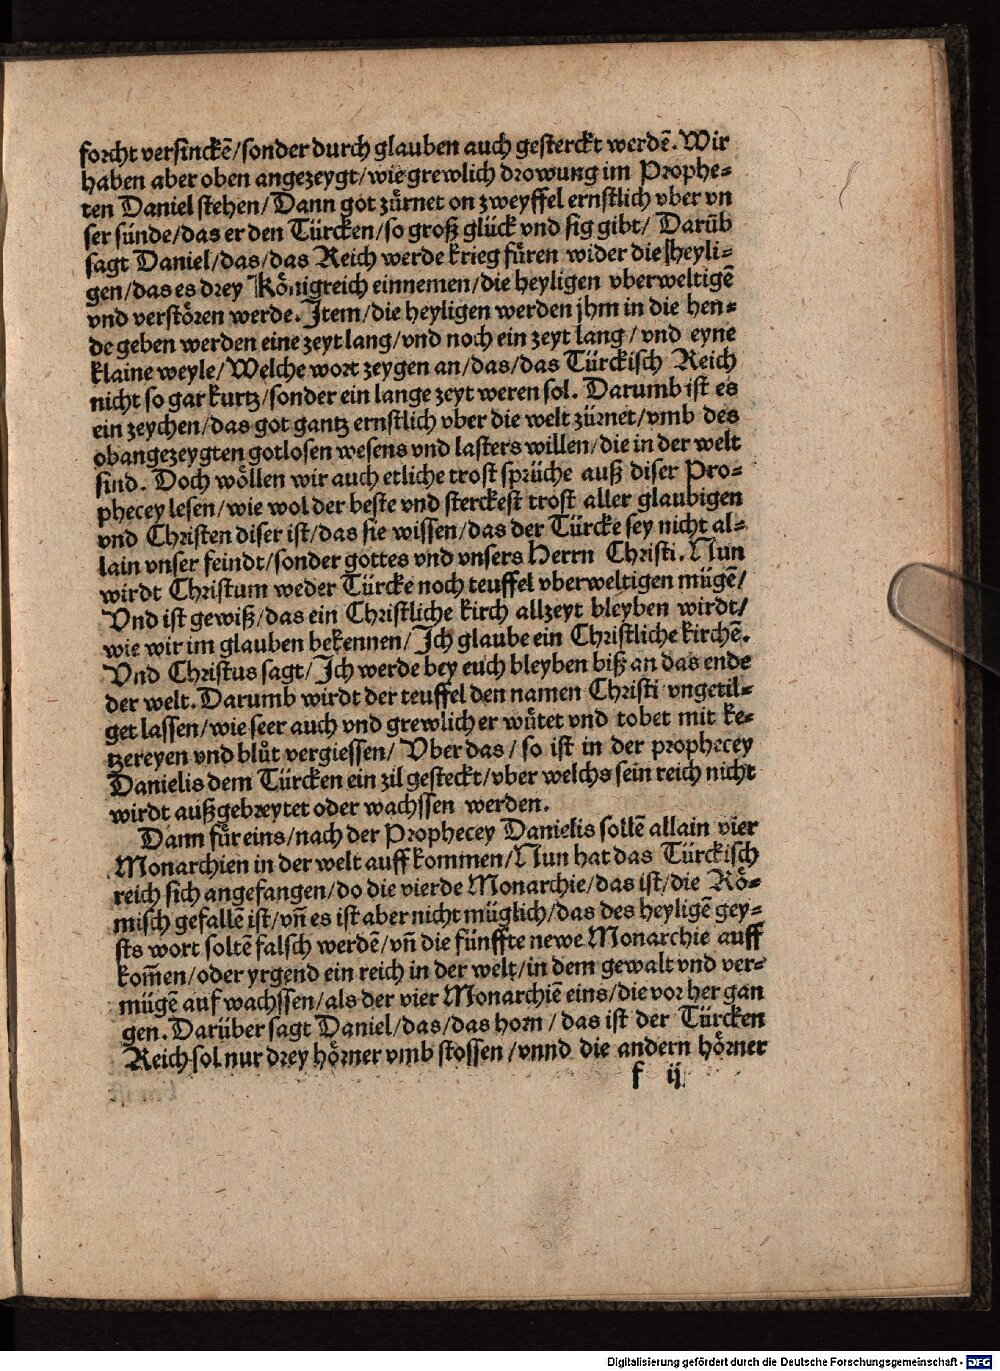 forcht versinckē/sonder durch glauben auch gesterckt werdē. Wir
haben aber oben angezeygt/wie grewlich drowung im Prophe-
ten Daniel stehen/Dann got zůrnet on zweyffel ernstlich vber vn
ser sünde/das er den Türcken/so groß glück vnd sig gibt/ Darūb
sagt Daniel/das/das Reich werde krieg füren wider die heyli-
gen/das es drey Königreich einnemen/die heyligen vberweltigē
vnd verstören werde. Item/die heyligen werden jhm in die hen-
de geben werden eine zeyt lang/vnd noch ein zeyt lang/ vnd eyne
klaine weyle/Welche wort zeygen an/das/das Türckisch Reich
nicht so gar kurtz/sonder ein lange zeyt weren sol. Darumb ist es
ein zeychen/das got gantz ernstlich vber die welt zürnet/vmb des
obangezeygten gotlosen wesens vnd lasters willen/die in der welt
sind. Doch wöllen wir auch etliche trost sprüche auß diser Pro-
phecey lesen/wie wol der beste vnd sterckest trost aller glaubigen
vnd Christen diser ist/das sie wissen/das der Türcke sey nicht al-
lain vnser feindt/sonder gottes vnd vnsers Herrn Christi. Nun
wirdt Christum weder Türcke noch teuffel vberweltigen mügē/
Vnd ist gewiß/das ein Christliche kirch allzeyt bleyben wirdt/
wie wir im glauben bekennen/Ich glaube ein Christliche kirchē.
Vnd Christus sagt/Ich werde bey euch bleyben biß an das ende
der welt. Darumb wirdt der teuffel den namen Christi vngetil-
get lassen/wie seer auch vnd grewlich er wütet vnd tobet mit ke-
tzereyen vnd blůt vergiessen/ Vber das/ so ist in der prophecey
Danielis dem Türcken ein zil gesteckt/vber welchs sein reich nicht
wirdt außgebreytet oder wachssen werden.
Dann für eins/nach der Prophecey Danielis sollē allain vier
Monarchien in der welt auff kommen/Nun hat das Türckisch
reich sich angefangen/do die vierde Monarchie/das ist/die Rö-
misch gefallē ist/vñ es ist aber nicht müglich/das des heyligē gey-
sts wort soltē falsch werdē/vñ die fünffte newe Monarchie auff
kom̄en/oder yrgend ein reich in der welt/in dem gewalt vnd ver-
mügē auf wachssen/als der vier Monarchiē eins/die vor her gan
gen. Darüber sagt Daniel/das/das horn/ das ist der Türcken
Reich sol nur drey hörner vmb stossen/vnnd die andern hörner
f ij
Digitalisierung gefördert durch die Deutsche Forschungsgemeinschaft - DFG